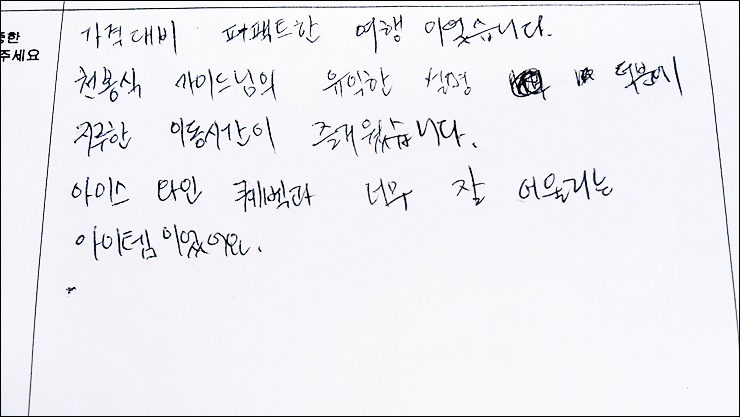 중한
주세요
가격대비 퍼팩트한 여행 이었습니다.
천봉식 가이드님의 유익한 설명 덕분에
지루한 이동시간이 즐거웠습니다.
아이스 와인 퀘벡과 너무 잘 어울리는
아이템이었어요.